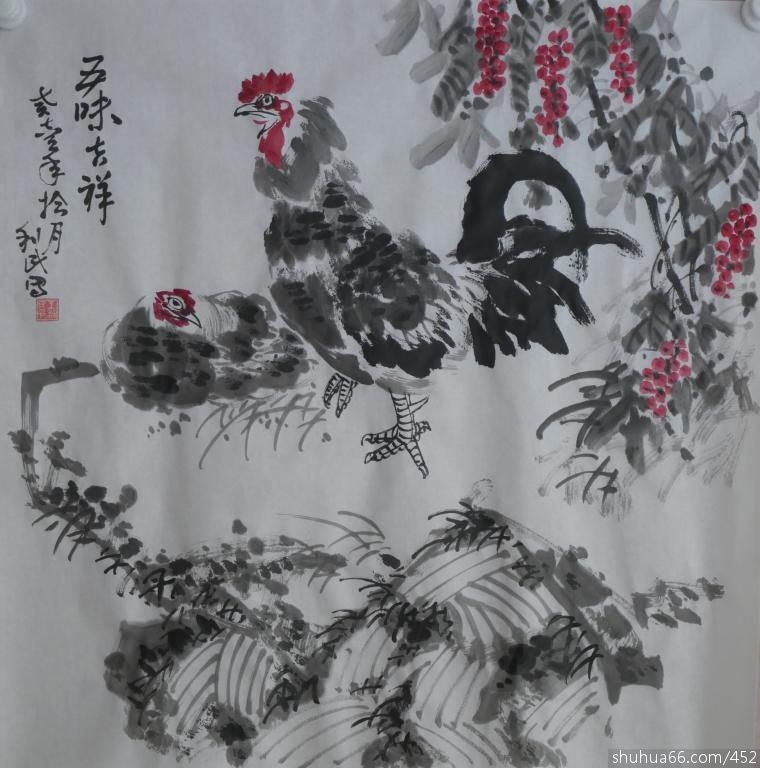 五味吉祥
癸巳年拾月
利民写
shuhua66.com/452